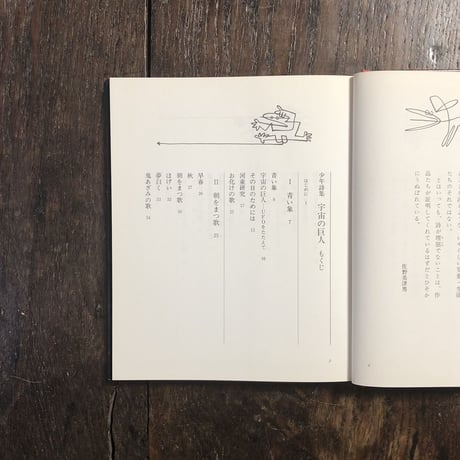 たちのそれではない。
とはいっても、詩が理屈でないことは、作
品たちが証明してくれているはずだとひそか
にうぬぼれている。
佐野美津男
少年詩集 宇宙の巨人 もくじ
はじめに
I 青い象 7
青い象 8
宇宙の巨人―UFOをたたえて 10
その日のためには
河童研究 17
お化けの歌 22
II 朝をまつ歌 25
早春
秋 27
朝をまつ歌 30
ほげい 32
夢曰く 33
鬼あざみの歌 34